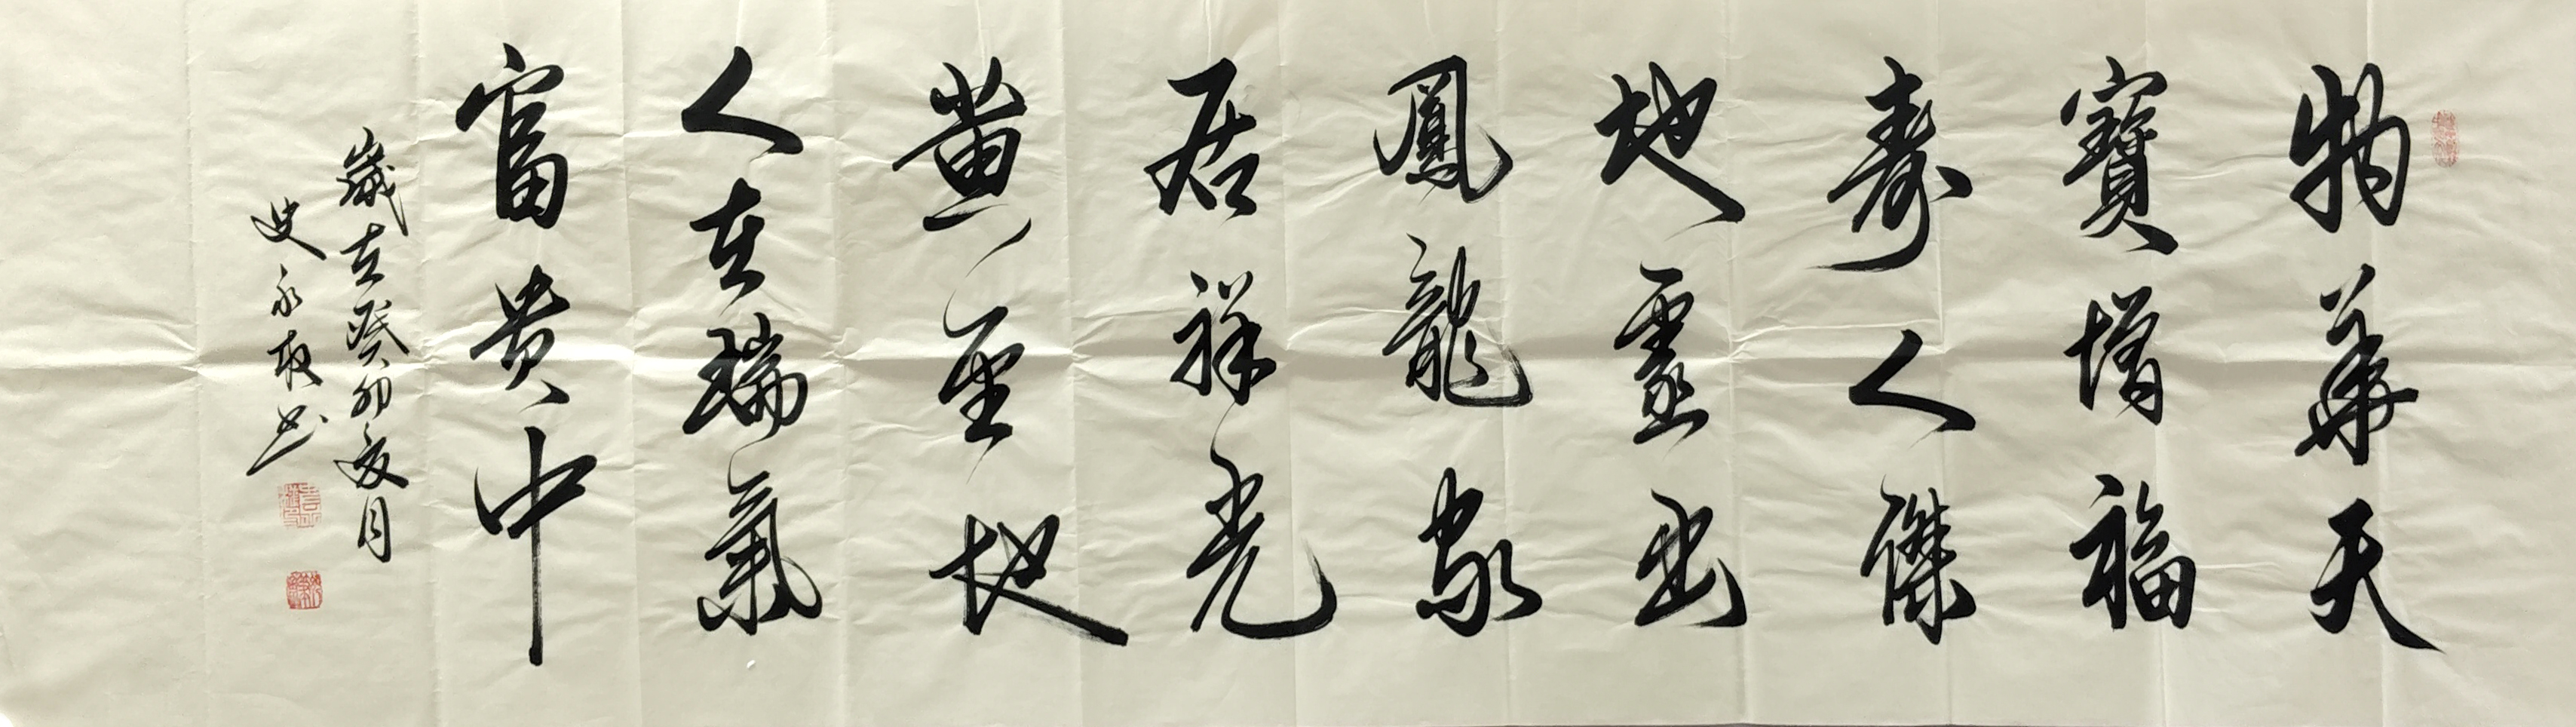 物華天
寶增福
壽人傑
地靈出
鳳龍家
居祥光
黃金地
人在瑞氣
富貴中
歲在癸卯夏月
史永敏書